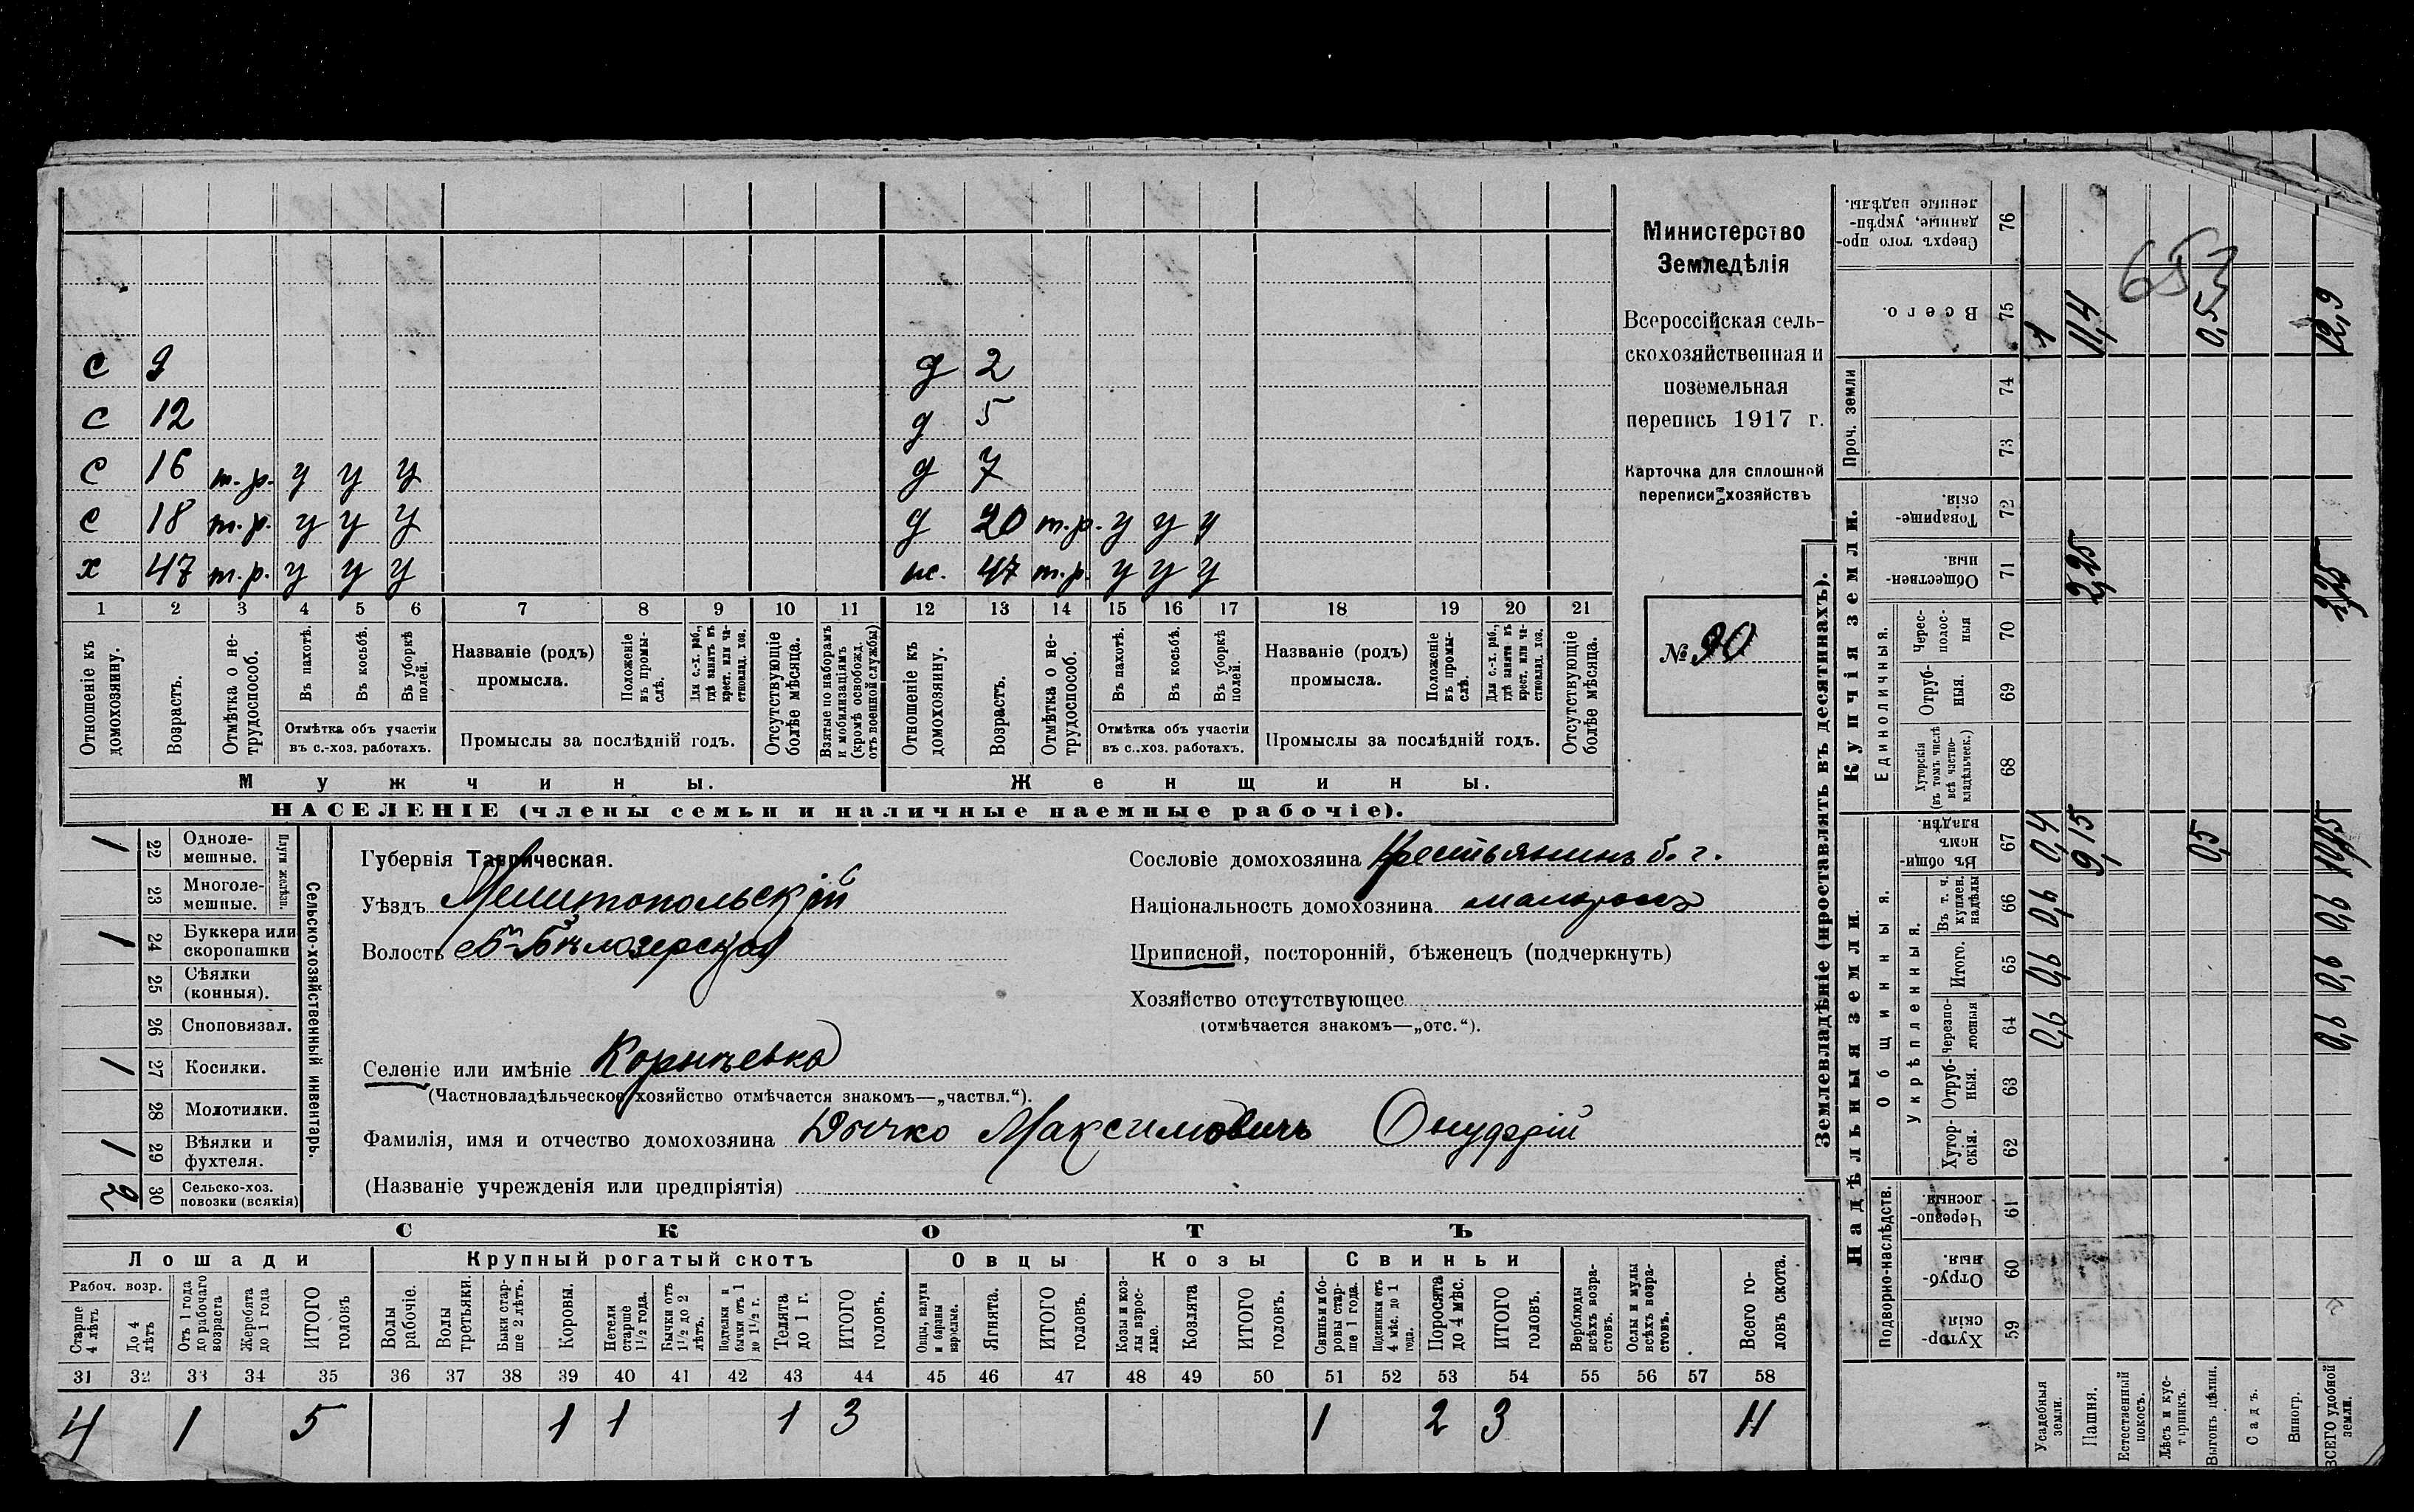 с 9 д 2
с 12 д 5
с 16 т.р. у у у д 7
с 18 т.р. у у у д 20 т.р. у у у
х 47 т.р. у у у ж. 47 т.р. у у у
1 2 3 4 5 6 7 8 9 10 11 12 13 14 15 16 17 18 19 20 21
Отношеніе къ домохозяину.
Возрастъ.
Отмѣтка о не-трудоспособ.
Въ пахотѣ.
Въ косьбѣ.
Въ уборкѣ полей.
Отмѣтка объ участіи
въ с.-хоз. работахъ.
Названіе (родъ)
промысла.
Положеніе въ промы-слѣ.
Для с.-х. раб., гдѣ занятъ въ крест. или ча-стновлад. хоз.
Промыслы за послѣдній годъ.
Отсутствующіе болѣе мѣсяца.
Взятые по наборамъ и мобилизаціямъ (кромѣ освобожд. отъ военной службы)
Отношеніе къ домохозяину.
Возрастъ.
Отмѣтка о не-трудоспособ.
Въ пахотѣ.
Въ косьбѣ.
Въ уборкѣ полей.
Отмѣтка объ участіи
въ с..хоз. работахъ.
Названіе (родъ)
промысла.
Положеніе въ промы-слѣ.
Для с.-х. раб., гдѣ занята въ крест. или ча-стновлад. хоз.
Промыслы за послѣдній годъ.
Отсутствующіе болѣе мѣсяца.
Мужчины.
Женщины.
НАСЕЛЕНІЕ (члены семьи и наличные наемные рабочіе).
Министерство
Земледѣлія
Всероссійская сель-
скохозяйственная и
поземельная
перепись 1917 г.
Карточка для сплошной
переписи хозяйствъ
№ 90
Сельско-хозяйственный инвентарь.
Плуги желѣзн.
1 22 Одноле-мешные.
23 Многоле-мешные.
1 24 Буккера или скоропашки
25 Сѣялки (конныя).
26 Сноповязал.
1 27 Косилки.
28 Молотилки.
1 29 Вѣялки и фухтеля.
2 30 Сельско-хоз. повозки (всякія)
Губернія Таврическая.
Уѣздъ Мелитопольскій
Волость Б-Бѣлозерская
Селеніе или имѣніе
(Частновладѣльческое хозяйство отмѣчается знакомъ—„частвл.“).
Фамилія, имя и отчество домохозяина Дычко Максимовичъ Онуфрій
(Названіе учрежденія или предпріятія)
Сословіе домохозяина Крестьянинъ б. г.
Національность домохозяина малоросъ
Приписной, посторонній, бѣженецъ (подчеркнуть)
Хозяйство отсутствующее
(отмѣчается знакомъ—„отс.“).
СКОТЪ
Лошади
Крупный рогатый скотъ
Овцы
Козы
Свиньи
Рабоч. возр.
Старше 4 лѣтъ
До 4 лѣтъ
Отъ 1 года до рабочаго возраста
Жеребята до 1 года
ИТОГО головъ
Волы рабочіе.
Волы третьяки.
Быки стар-ше 2 лѣтъ.
Коровы.
Нетели старше 1½ года.
Бычки отъ 1½ до 2 лѣтъ.
Подтелки и бычки отъ 1 до 1½ г.
Телята до 1 г.
ИТОГО головъ.
Овцы, валухи и бараны взрослые.
Ягнята.
ИТОГО головъ.
Козы и коз-лы взрос-лые.
Козлята
ИТОГО головъ.
Свиньи и бо-ровы стар-ше 1 года.
Подсвинки отъ 4 мѣс. до 1 года.
Поросята до 4 мѣс.
ИТОГО головъ.
Верблюды всѣхъ возра-стовъ.
Ослы и мулы всѣхъ возра-стовъ.
Всего го-ловъ скота.
31 32 33 34 35 36 37 38 39 40 41 42 43 44 45 46 47 48 49 50 51 52 53 54 55 56 57 58
4 1 5 1 1 1 3 1 2 3 11
Землевладѣніе (проставлять въ десятинахъ).
Надѣльныя земли.
Купчія земли.
Проч. земли
Подворно-наслѣдств.
Общинныя.
Укрѣпленныя.
Единоличныя.
Хутор-скія. 59
Отруб-ныя. 60
Черезпо-лосныя. 61
Хутор-скія. 62
Отруб-ныя. 63
Черезпо-лосныя 64
Итого. 65
Въ т. ч. куплен. надѣлы 66
Въ общи-номъ владѣн. 67
Хуторскія (въ томъ числѣ всѣ частно-владѣльческ.) 68
Отруб-ныя. 69
Черес-полос-ныя 70
Обществен-ныя. 71
Товарище-скія. 72
73
74
Всего. 75
Сверхъ того про-данные, укрѣп-ленные надѣлы. 76
Усадебныя земли. 0,6 0,6 0,6 0,4 1
Пашня. 9,15 2,25 11,4
Естественный покосъ.
Лѣсъ и кус-тарникъ.
Выгонъ цѣлин. 0,5 0,5
Садъ.
Виногр.
ВСЕГО удобной земли. 0,6 0,6 0,6 10,05 12,9
653